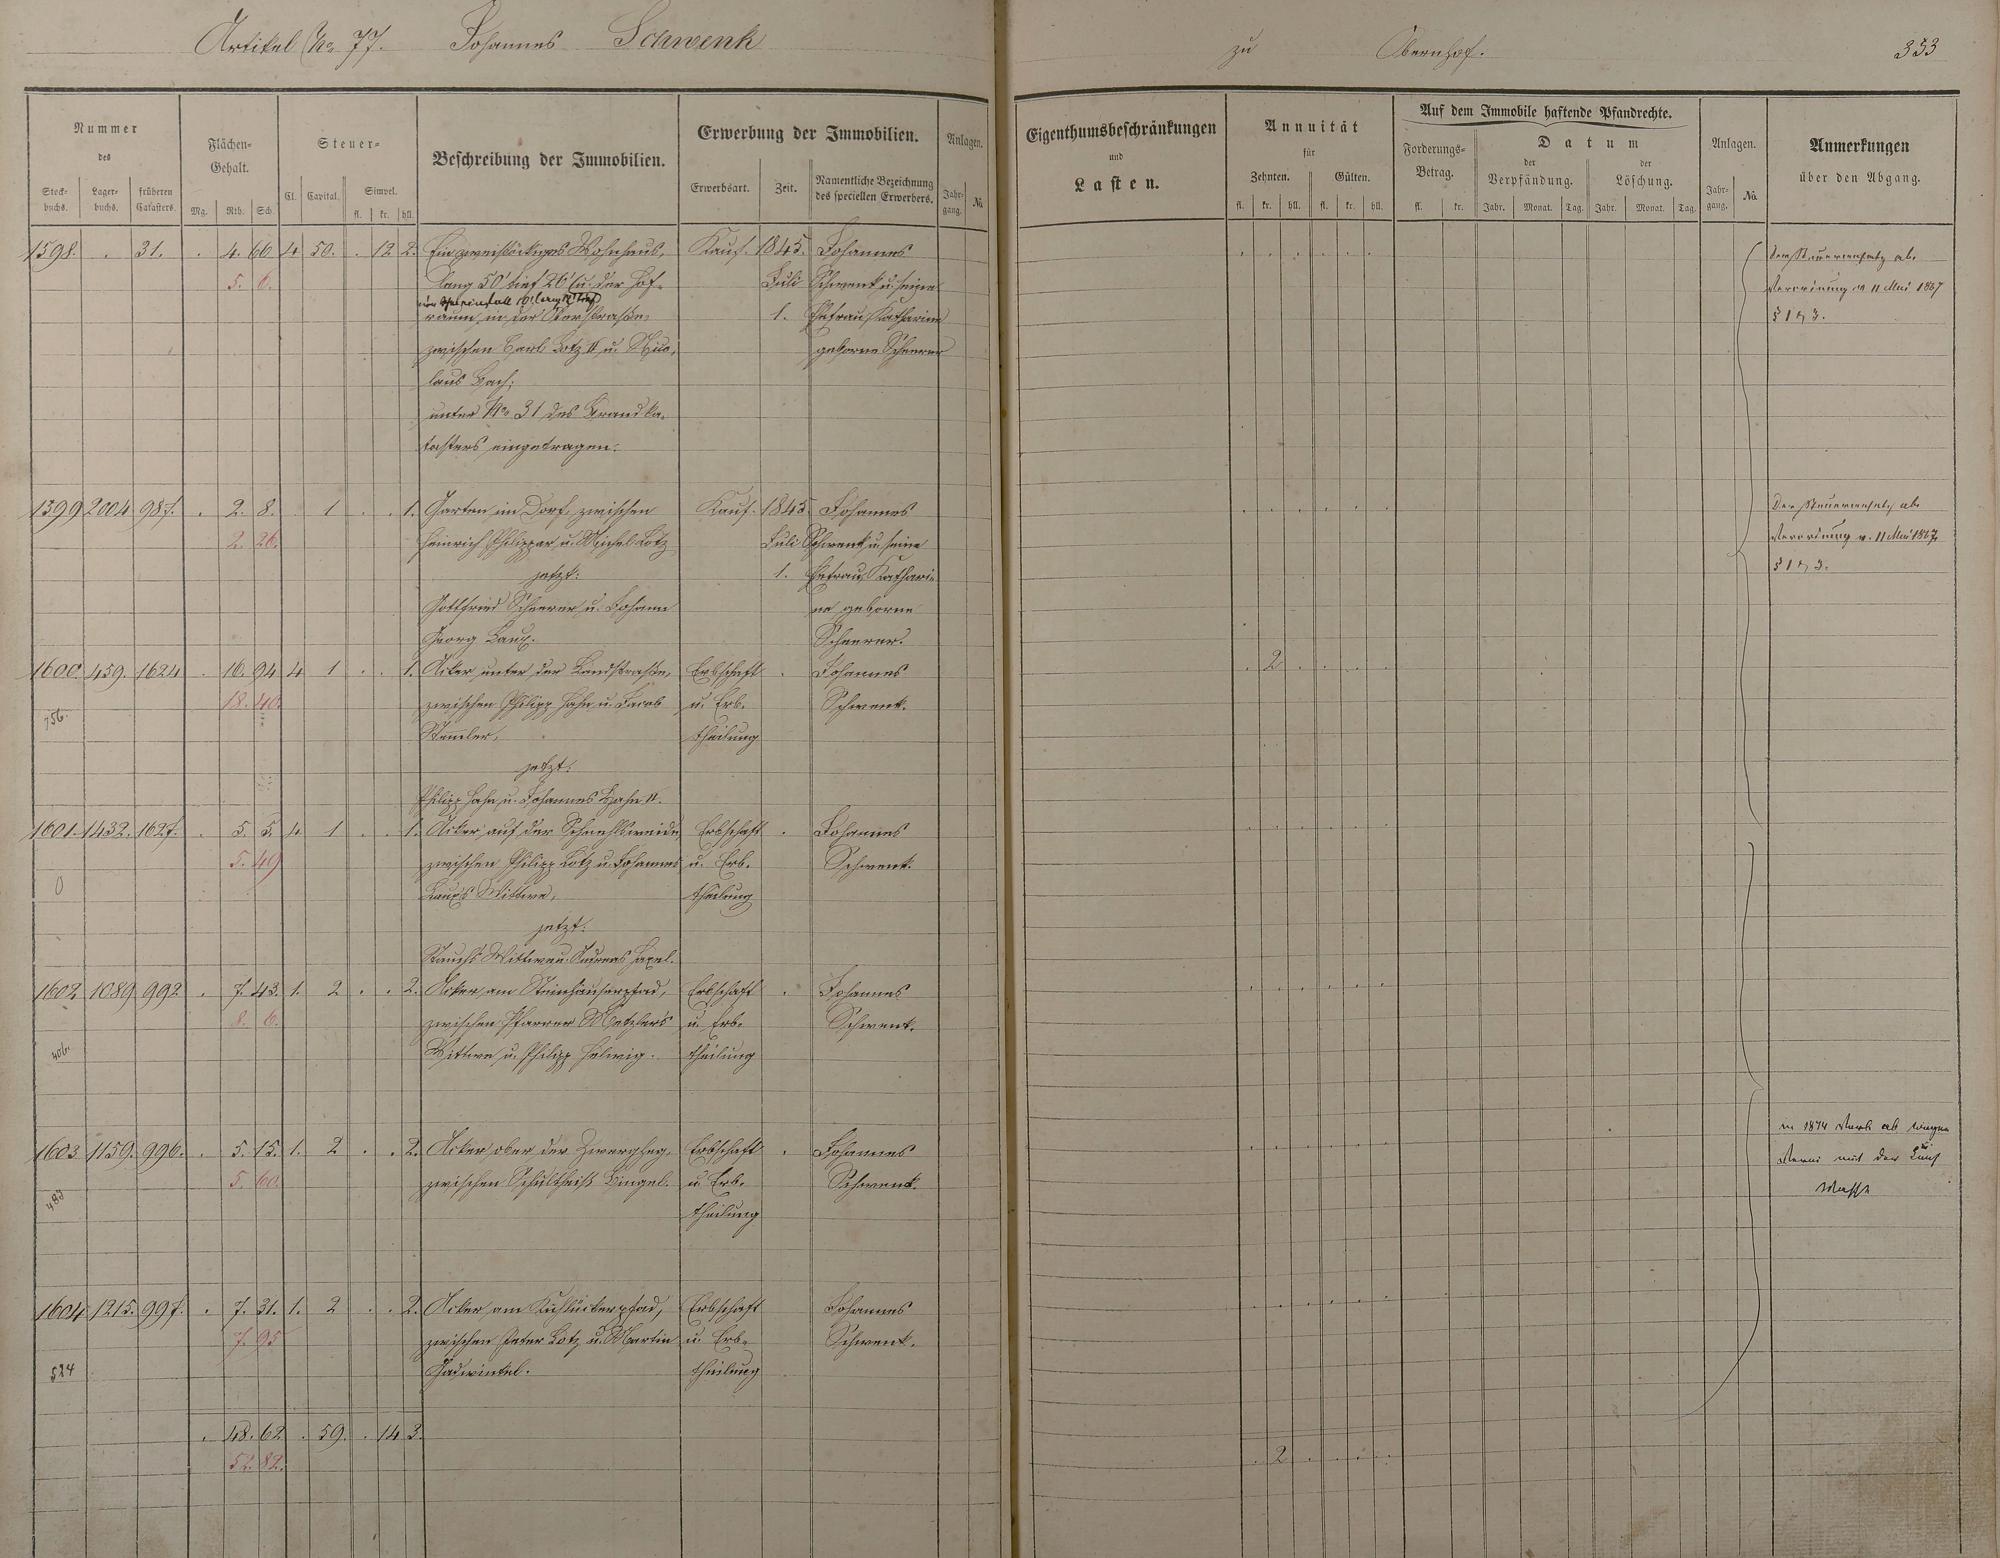 Artikel No 77. Johannes Schwenk zu Obernhof. 353
Nummer des
Stockbuchs. Lagerbuchs. früheren Catasters.
Flächen-Gehalt.
Mg. Rth. Sch.
Steuer-
Cl. Capital. Simpel.
fl. kr. hll.
Beschreibung der Immobilien.
Erwerbung der Immobilien.
Erwerbsart. Zeit. Namentliche Bezeichnung des speciellen Erwerbers.
Anlagen.
Jahrgang. No.
Eigenthumsbeschränkungen
und
Lasten.
Annuität
für
Zehnten. Gülten.
fl. kr. hll. fl. kr. hll.
Auf dem Immobile haftende Pfandrechte.
Forderungs-Betrag.
fl. kr.
Datum
der Verpfändung. der Löschung.
Jahr. Monat. Tag. Jahr. Monat. Tag.
Anlagen.
Jahrgang. No.
Anmerkungen
über den Abgang.
1598. . 31. . 4. 66 4 50. . 12 2. Ein zweistöckiges Wohnhaus, Kauf. 1845. Johannes
5. 6. lang 50' tief 26' u. der Hof- Juli Schwenk u. seine
raum, in der Oberstraße, 1. Ehefrau Katharine
zwischen Carl Lotz II u. Nico- geborne Scheerer
laus Bach;
unter No 31 des Brandka-
tasters eingetragen.
Verordnung v 11 Mai 1867
§ 1 3.
1599 2004 987. . 2. 8. 1 . . 1. Garten im Dorf, zwischen Kauf. 1845. Johannes
2. 26. Heinrich Philippar u. Michel Lotz Juli Schwenk u. seine
jetzt: 1. Ehefrau Kathari-
Gottfried Scheerer u. Johann ne geborne
Georg Laux. Scheerer.
Verordnung v. 11 Mai 1867
§ 1 3.
1600. 459. 1624 . 16. 94 4 1 . . 1. Acker unter der Landstraße, Erbschaft . Johannes . 2
18. 40. zwischen Philipp Hahn u. Jacob u. Erb- Schwenk.
756. Stemler, theilung
jetzt:
Philipp Hahn u. Johannes Hahn II.
1601. 1432. 1627. . 5. 5. 4. 1 . . 1. Acker auf der Erbschaft . Johannes
5. 49 zwischen Philipp Lotz u. Johannes u. Erb- Schwenk.
0 Laux's Wittwe, theilung
jetzt:
Wittwe u. Andreas
1602. 1089 992 . 7. 43. 1. 2 . . 2. Acker, am Steinhäuserpfad, Erbschaft . Johannes
8. 6. zwischen Pfarrer Metzler's u. Erb- Schwenk.
406. Wittwe u. Philipp Helwig. theilung
1603. 1159. 996. . 5. 15. 1. 2 . . 2. Acker, ober der Erbschaft . Johannes
5. 60. zwischen Schultheiß Bingel. u. Erb- Schwenk.
483 theilung
in 1874 ab wegen
mit der
Masse
1604 1215. 997. . 7. 31. 1. 2 . . 2. Acker am Erbschaft Johannes
7. 95 zwischen Peter Lotz u. Martin u. Erb- Schwenk.
524 theilung
. 48. 62. . 59. . 14 3. . 2
52. 82.